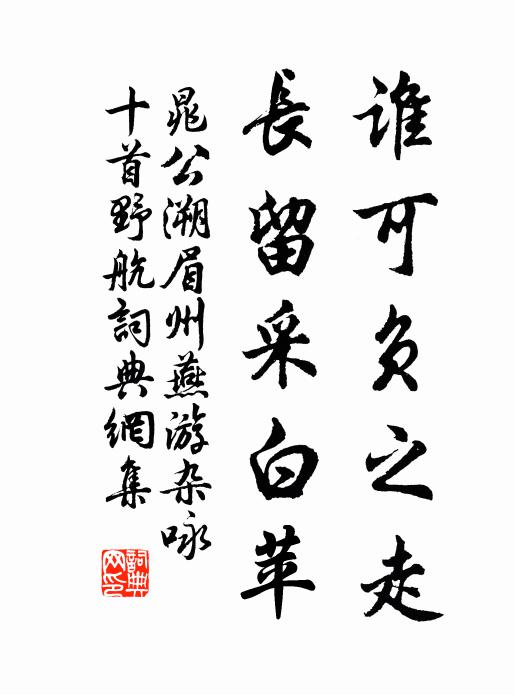 谁可負之走
長留采白苹
晁公溯眉州燕游杂咏
十首野航詞典網集
詞典網印